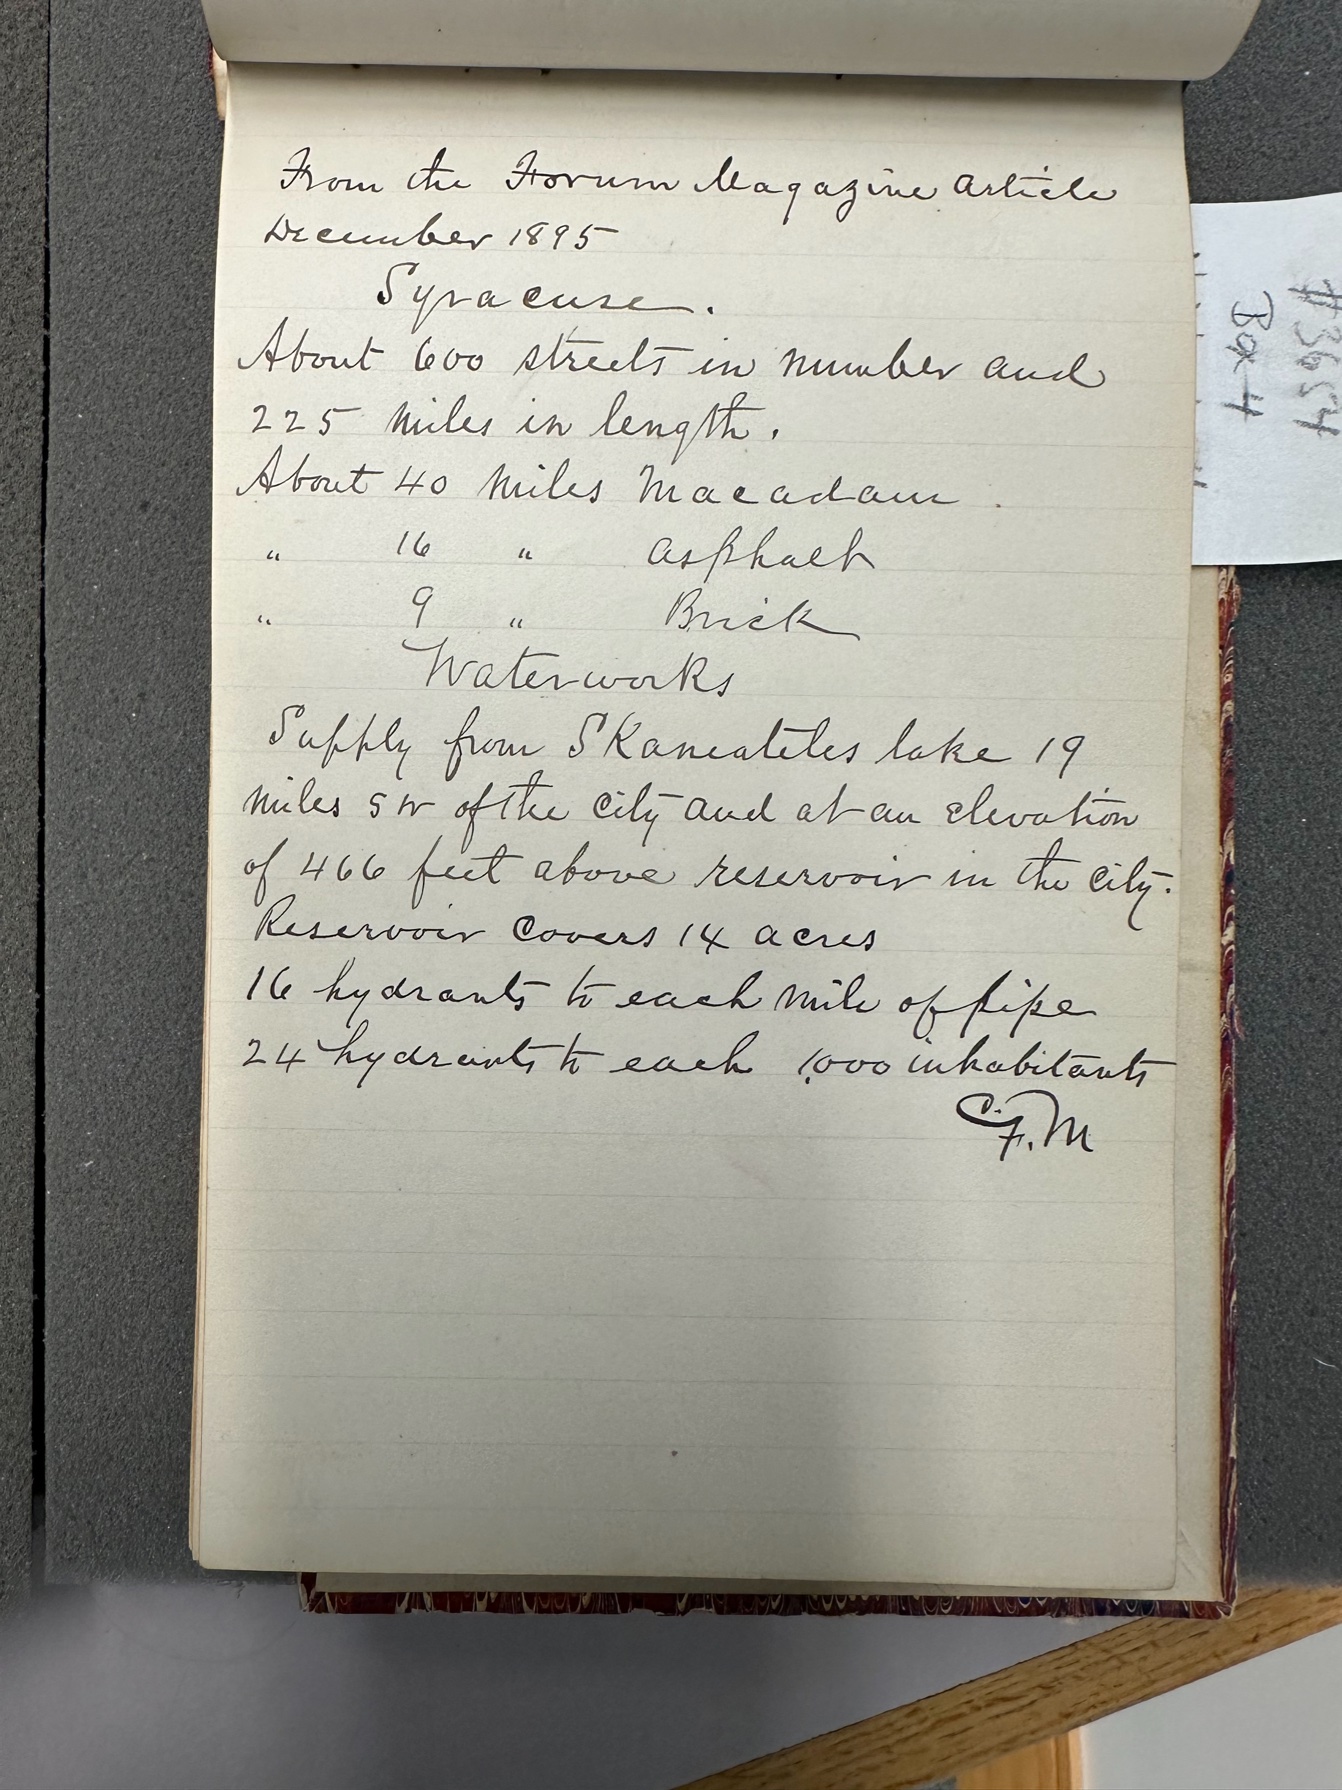 From the Forum Magazine article
December 1895
Syracuse.
About 600 streets in number and
225 miles in length.
About 40 miles Macadam
" 16 " asphalt
" 9 " Brick
Waterworks
Supply from Skaneateles lake 19
miles SW of the city and at an elevation
of 466 feet above reservoir in the city.
Reservoir covers 14 acres
16 hydrants to each mile of pipe
24 hydrants to each 1,000 inhabitants
C.F.M
#3654
Box 4